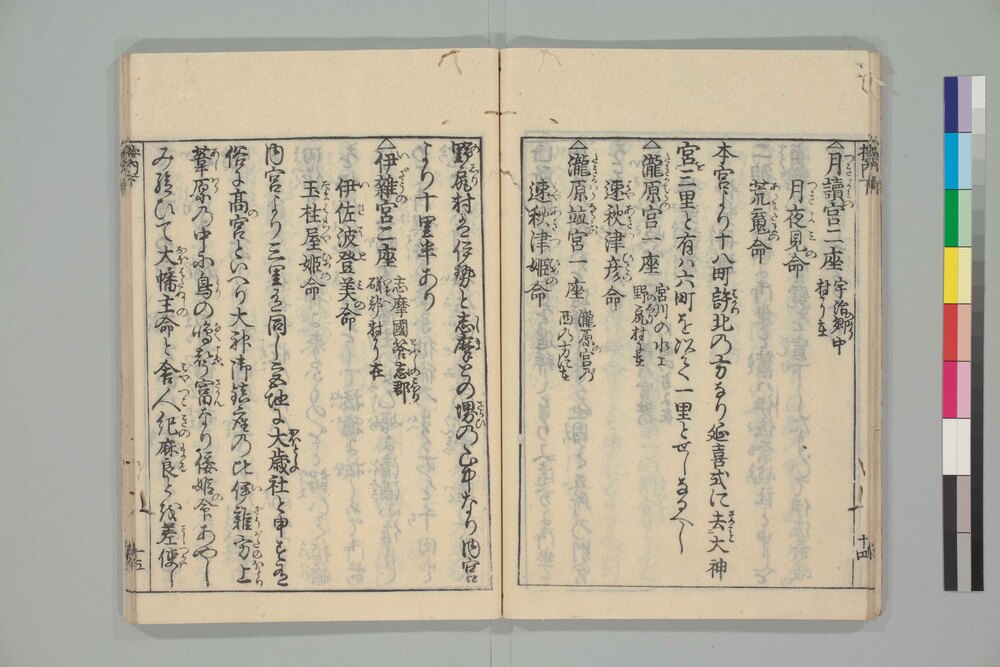 月讀宮二座 宇治郷中村ニ在
月夜見命
荒魂命
本宮より十八町許北の方なり延喜式に去大神
宮三里と有ハ六町を以て一里とせしなるへし
瀧原宮一座 宮川の水上野尻村ニ在
速秋津彦命
瀧原並宮一座 瀧原宮乃西乃方に在
速秋津姫命
十四
野尻村は伊勢と志摩との堺の山中なり内宮
より十里半あり
伊雜宮二座 志摩國荅志郡磯部村ニ在
伊佐波登美命
玉柱屋姫命
内宮より三里を同し地に大歳社と申も有
俗に髙宮といへり大神御鎮座乃比伊雜方上
葦原乃中に鳥の鳴聲甚なり倭姫命あやし
み給ひて大幡主命と舎人紀麻良とを差使し
十五